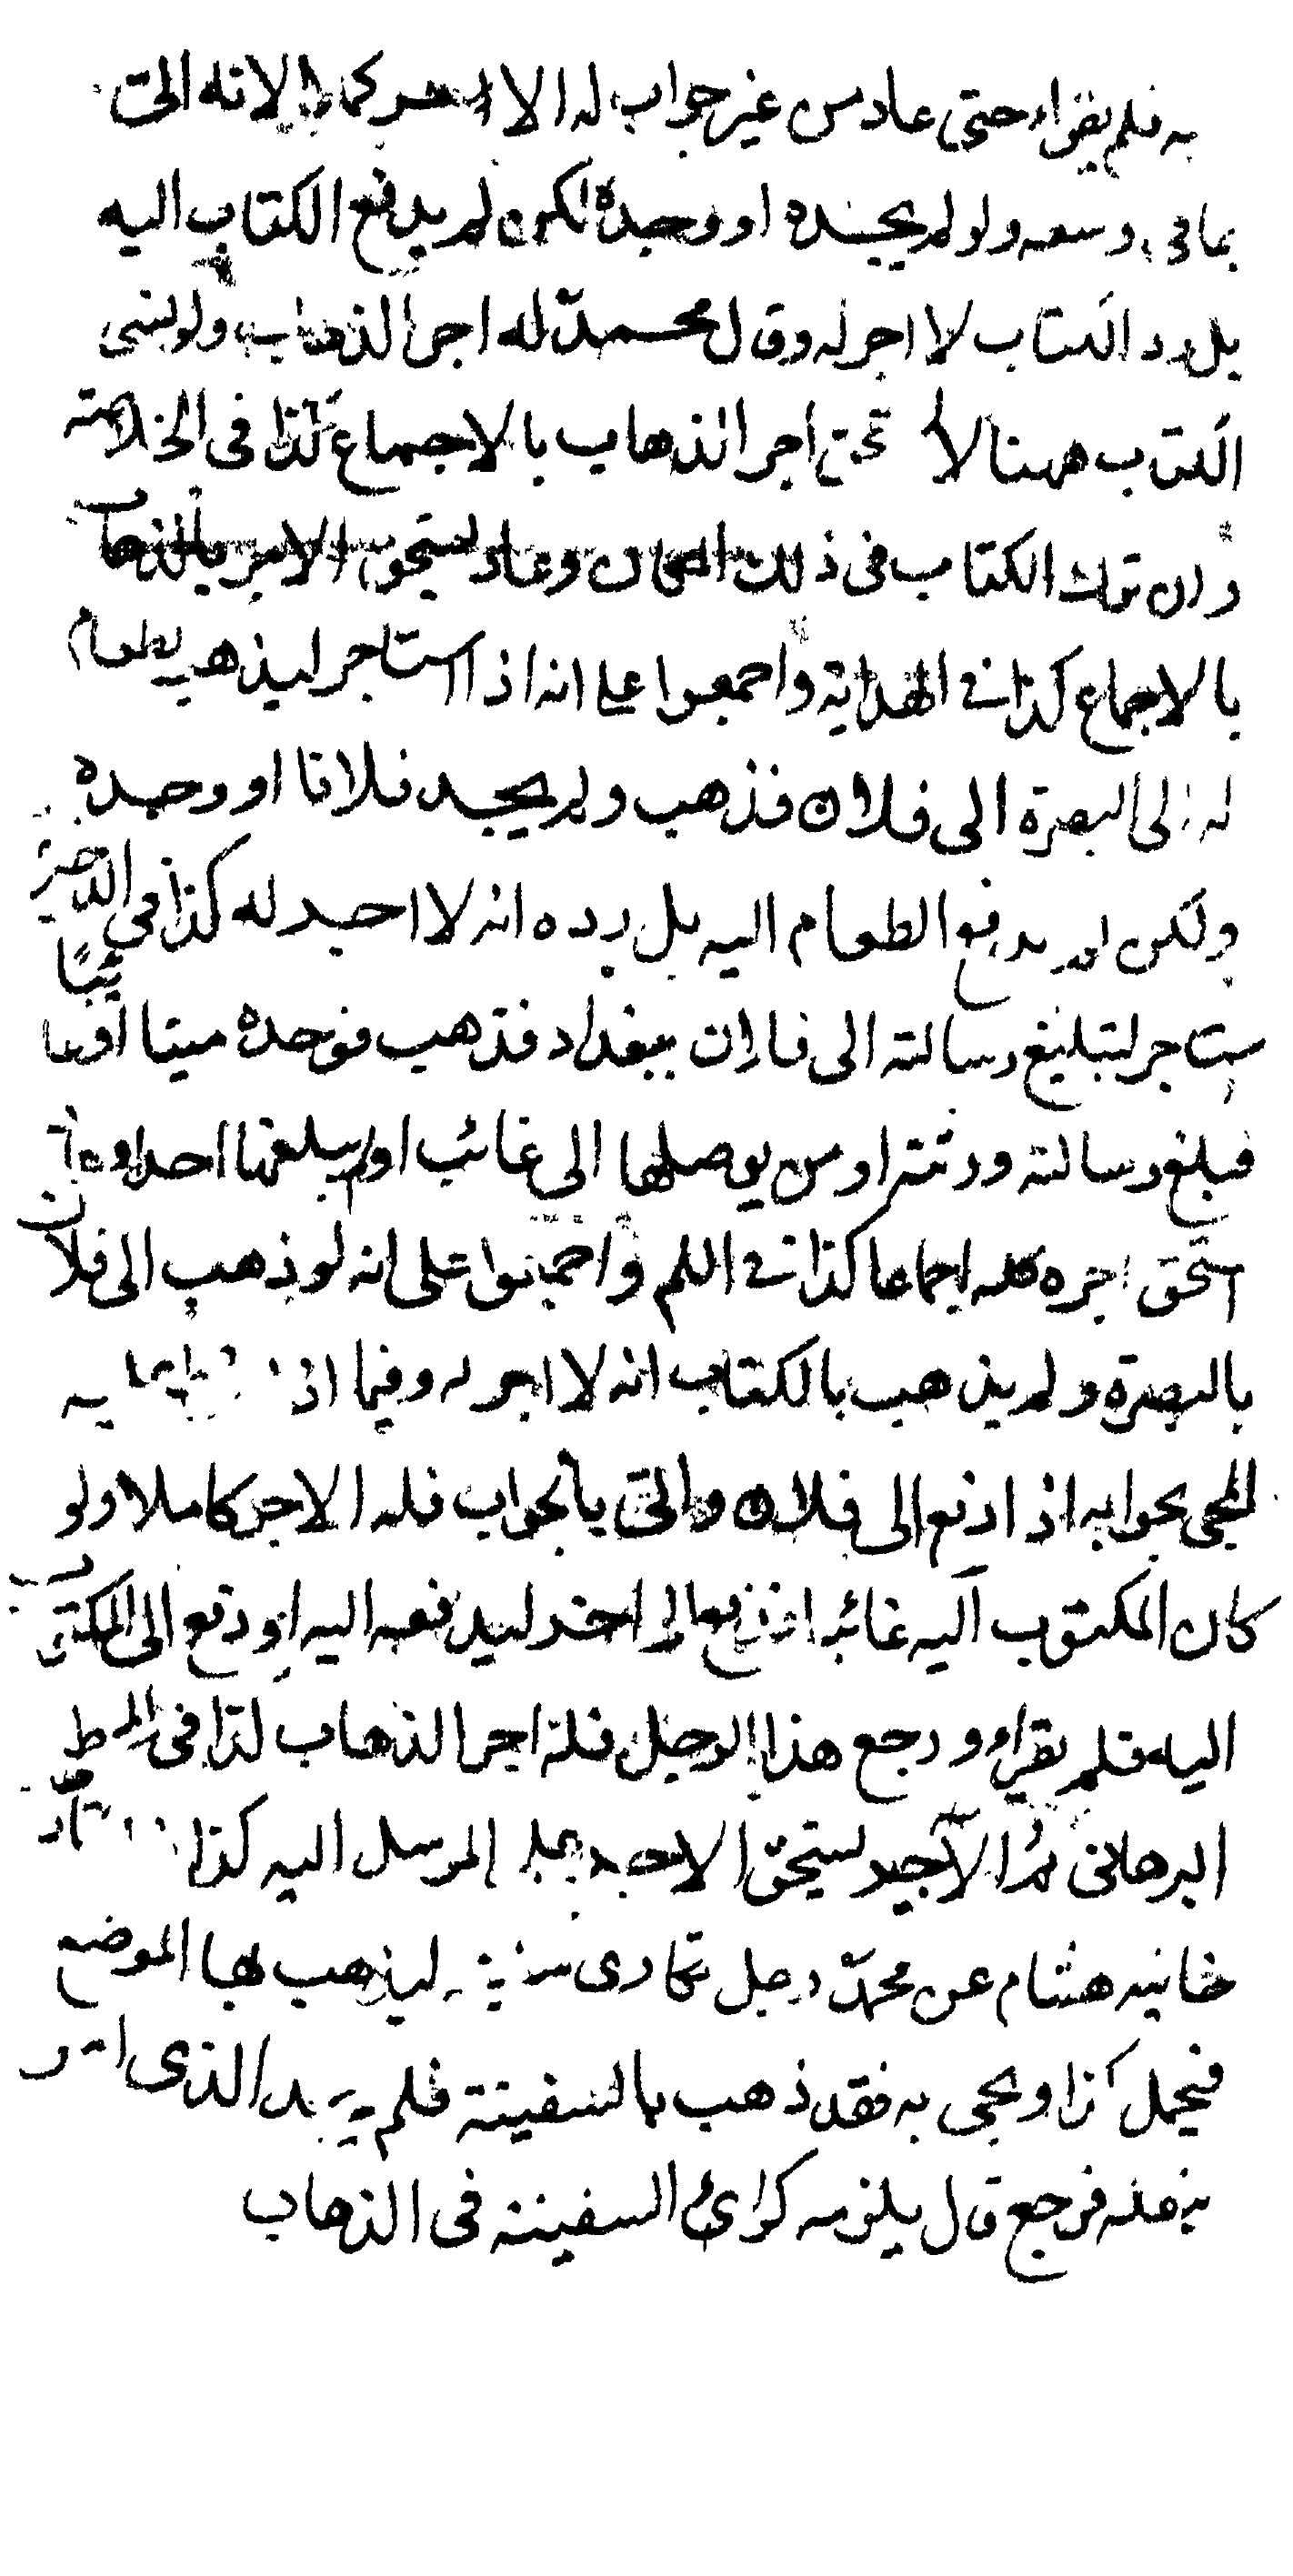 به فلم يقراء حتى عاد من غير جواب له الاجر كملا لانه اتى
بما فى وسعه ولو لم يجده او وجده لكن لم يدفع الكتاب اليه
بل رد الكتاب لا اجر له وقال محمد له اجر الذهاب ولو نسى
الكتاب ههنا لا يستحق اجر الذهاب بالاجماع كذا فى الخلاصة
وان ترك الكتاب فى ذلك المكان وعاد يستحق الاجر بالذهاب
بالاجماع كذا فى الهداية واجمعوا على انه اذا استاجر ليذهب بطعام
له الى البصرة الى فلان فذهب ولم يجد فلانا او وجده
ولكن لم يدفع الطعام اليه بل رده انه لا اجر له كذا فى الذخيرة
ستاجر لتبليغ رسالته الى فلان ببغداد فذهب فوجده ميتا او غائبا
فبلغ رسالته ورثته او من يوصلها الى غائب او لم يبلغها احدا و
استحق اجره كله اجماعا كذا فى اللم واجمعوا على انه لو ذهب الى فلان
بالبصرة ولم يذهب بالكتاب انه لا اجر له وفيما اذا به
للمجى بجوابه اذا دفع الى فلان واتى بالجواب فله الاجر كاملا ولو
كان المكتوب اليه غائبا فدفع الى اخر ليدفعه اليه او دفع الى المكتوب
اليه فلم يقراء ورجع هذا الرجل فله اجر الذهاب كذا فى المحيط
البرهانى الاجير يستحق الاجر المرسل اليه كذا
خانيه هشام عن محمد رجل تكارى سفينة ليذهب بها الموضع
فيحمل كذا ويجى به فقد ذهب بالسفينة فلم يجد الذى امر
بنقله فرجع قال يلزمه كراء السفينة فى الذهاب